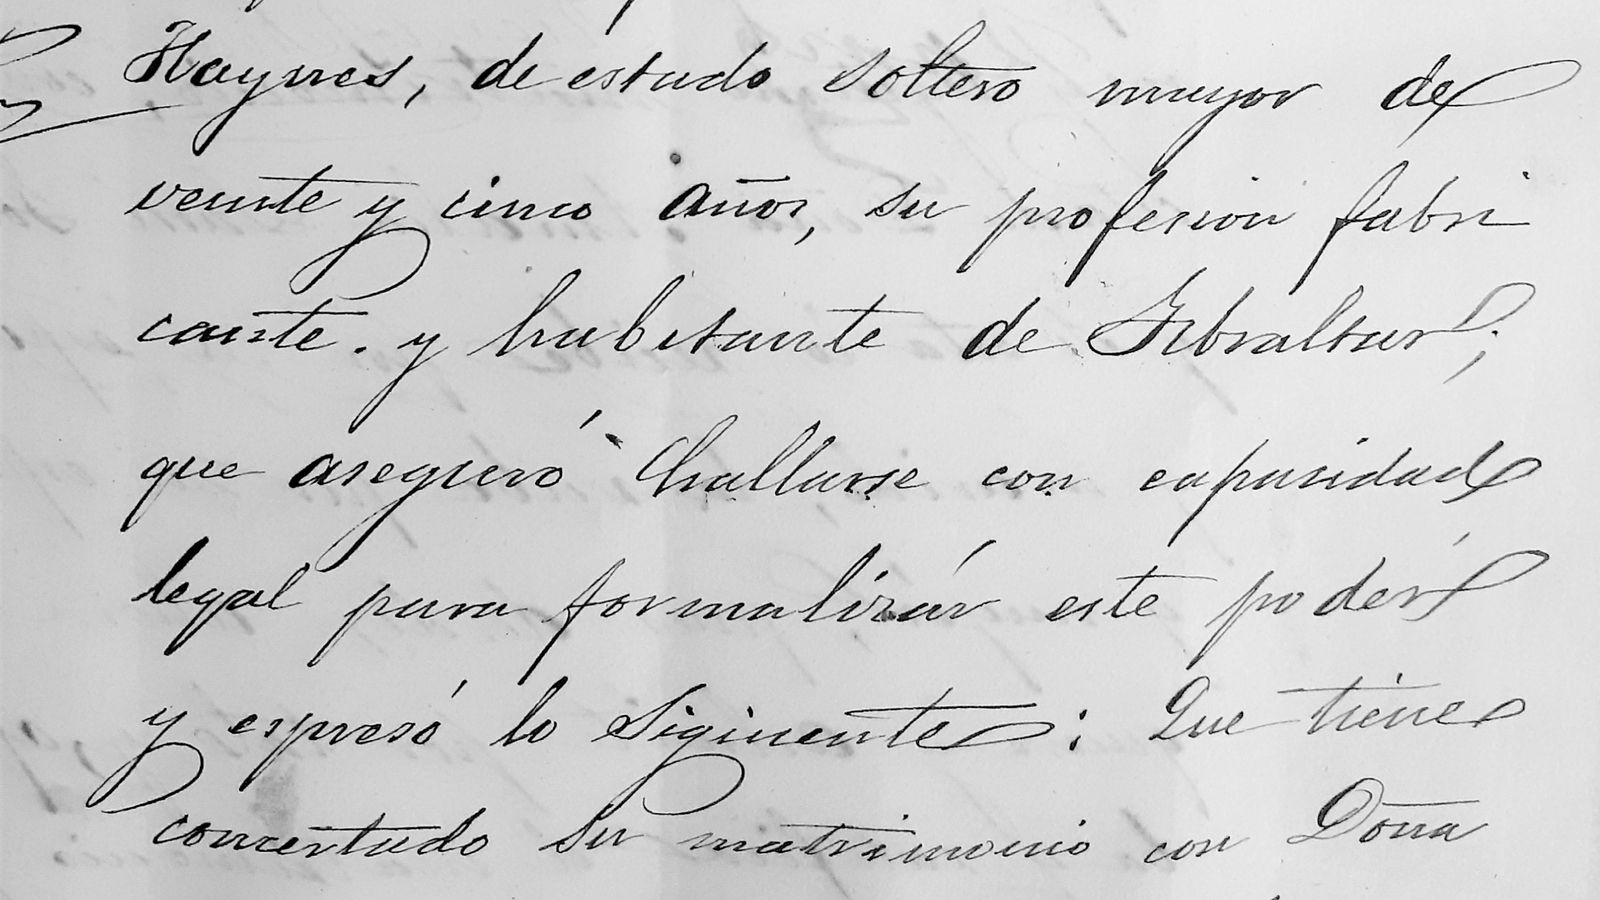 Haynes, de estado soltero mayor de
veinte y cinco años, su profesion fabri
cante. y habitante de Gibraltar;
que aseguró hallarse con capasidad
legal para formalizár este poder
y espresó lo siguiente: Que tiene
concertado su matrimonio con Doña